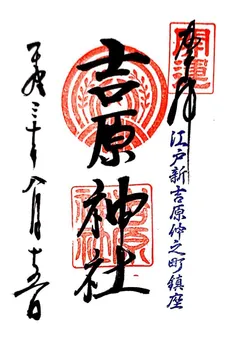 開運
奉拝
江戸新吉原仲之町鎮座
吉原神社
吉原神社
平成三十年八月十五日